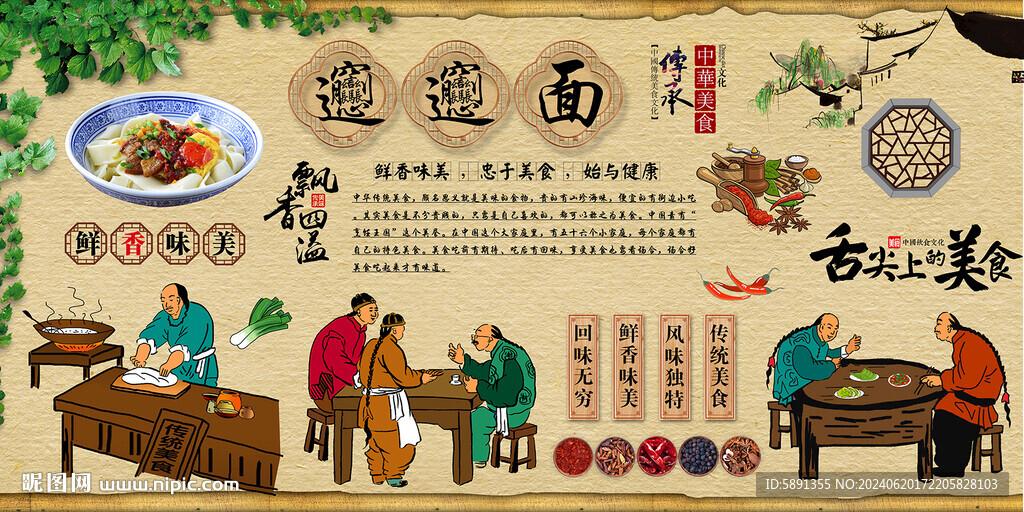 𰻝𰻝面
【中國傳統美食文化】
傳承
中華美食
文化
飘香四溢
鲜香味美，忠于美食，始与健康
中华传统美食，顾名思义就是美味的食物，贵的有山珍海味，便宜的有街边小吃
。其实美食是不分贵贱的，只需是自己喜欢的，都可以称之为美食。中国素有“
烹饪王国”这个美誉。在中国这个大家庭里，有五十六个小家庭，每个家庭都有
自己的特色美食。美食吃前有期待、吃后有回味，享受美食也需看场合，场合好
美食吃起来才有味道。
鲜香味美
舌尖上的美食
美食
中國飲食文化
回味无穷
鲜香味美
风味独特
传统美食
传统美食
昵图网 www.nipic.com
ID:5891355 NO:20240620172205828103